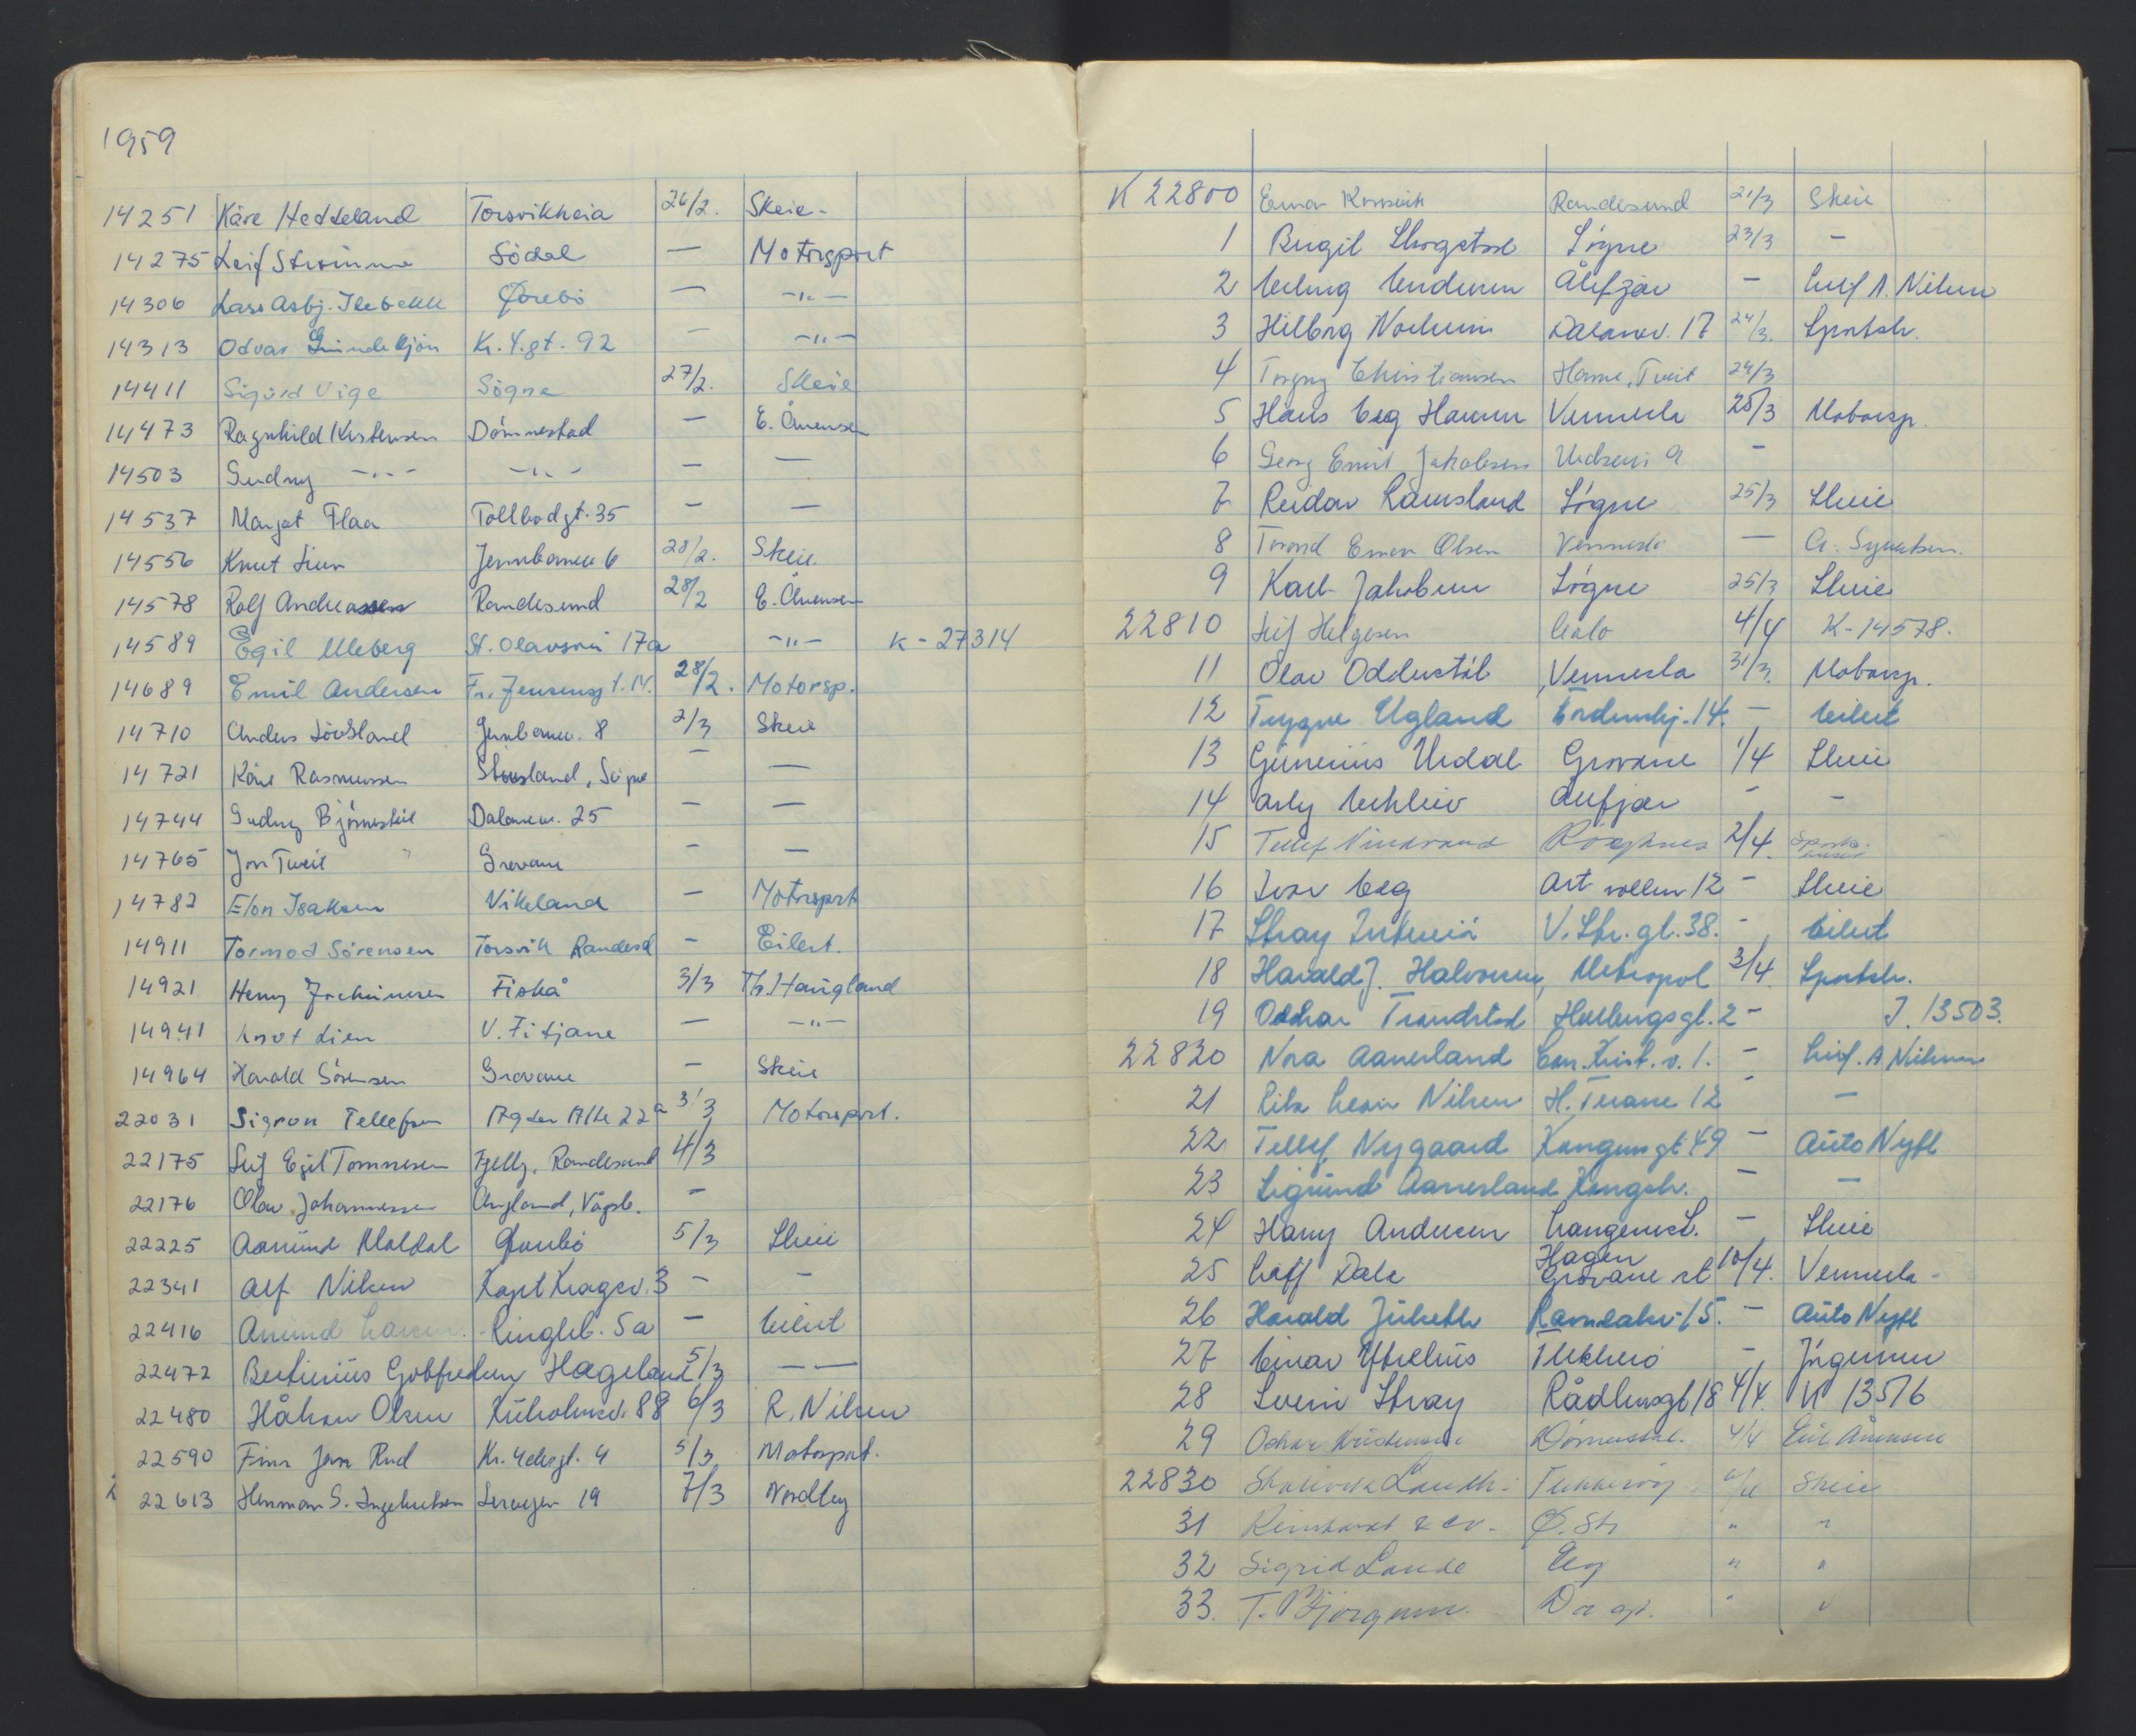 1959
14251 Kåre Hetteland Torsvikheia 26/2. Skeie -
14275 Leif Strømme Södal — Motorsport
14306 Lars Asbj. Ilebekk Ørebö — -"-
14313 Odvar Kr. 4. gt. 92 — -"-
14411 Sigurd Vige Sögne 27/2. Skeie
14473 Ragnhild Kristensen Dömmestad — E. Ånensen
14503 Gudny -"- -"- — —
14537 Margot Flaa Tollbodgt. 35 — —
14556 Knut Lien Jernbanev. 6 28/2. Skeie.
14578 Rolf Andreassen Randesund 28/2 E. Ånensen
14589 Egil Uleberg St. Olavsvei 17a -"- K - 27314
14689 Emil Andersen Fr. Jensensgt. 14. 28/2. Motorsp.
14710 Anders Lövsland Jernbanev. 8 2/3 Skeie
14721 Kåre Rasmussen Stausland, Sögne — —
14744 Gudny Björnestöl Dalanev. 25 — —
14765 Jon Tveit Grovane — —
14782 Elon Isaksen Vikeland — Motorsport
14911 Tormod Sörensen Torsvik Randesd — Eilert.
14921 Henry Jochimsen Fiskå 3/3 Th. Haugland
14941 Knut Lien V. Fitjane — -"-
14964 Harald Sörensen Grovane — Skeie
22031 Sigrun Tellefsen Agder Alle 22a 3/3 Motorsport.
22175 Leif Egil Tommesen Fjelly, Randesund 4/3
22176 Olav Johannessen Augland, Vågsb. —
22225 Aanund Moldal Ørebö 5/3 Skeie
22341 Alf Nilsen Kapt Kragsv. 3 — —
22416 Anund Larsen. Ringleb. 5a — Eilert
22472 Bertinius Gotfredsen Hageland 5/3 — —
22480 Håkon Olsen Kuholmsv. 88 6/3 R. Nilsen
22590 Finn Jern Rud Kr. 4desgt. 4 5/3 Motorsport.
22613 Herman S. Ingebretsen 19 7/3 Nordby
K 22800 Einar Korsvik Randesund 21/3 Skeie
1 Birgit Skogstad Sögne 23/3 —
2 Erling Andersen Ålefjær — Leif A. Nilsen
3 Hilborg Dalanev. 17 24/3. Sportsh.
4 Torgny Christiansen Hamre, Tveit 24/3
5 Hans Eeg Hansen Vennesla 25/3 Motorsp.
6 Georg Emil Jakobsen —
7 Reidar Ramsland Sögne 25/3 Skeie
8 Trond Einar Olsen Vennesla — A. Syvertsen.
9 Karl Jakobsen Sögne 25/3 Skeie
22810 Leif Helgesen 4/4 K-14578.
11 Olav Odderstöl Vennesla 31/3. Motorsp.
12 Trygve Ugland 14. — Eilert
13 Gunerius Urdal Grovane 1/4 Skeie
14 Asly Ålefjær — —
15 Tellef 2/4. Sports-
16 Ivar Eeg Art vollen 12 — Skeie
17 Stray V. Str. gt. 38. — Eilert
18 Harald J. Halvorsen, Metropol 3/4. Sportsh.
19 Oddvar Trondstad Holbergsgt. 2 — J. 13503.
22820 Nora Aanesland Chr. Krist. v. 1. — Leif. A. Nilsen
21 Nilsen H. Terane 12 — —
22 Tellef Nygaard Kongensgt 49 — Auto Nytt
23 Sigrund Aanesland Kongsh. — —
24 Harry Andersen — Skeie
25 Dale Hagen Grovane st 10/4. Vennesla -
26 Harald 15. — Auto Nytt
27 Einar — Jörgensen
28 Svein Stray Rådhusgt 18 4/4. K 13576
29 Oskar Kristensen Dömmestad. 4/4 Eiel. Ånensen
22830 Skeie
31 Reinhardt Ø. Str " "
32 Sigrid Lande Eeg " "
33. T. Bjorgum. " "